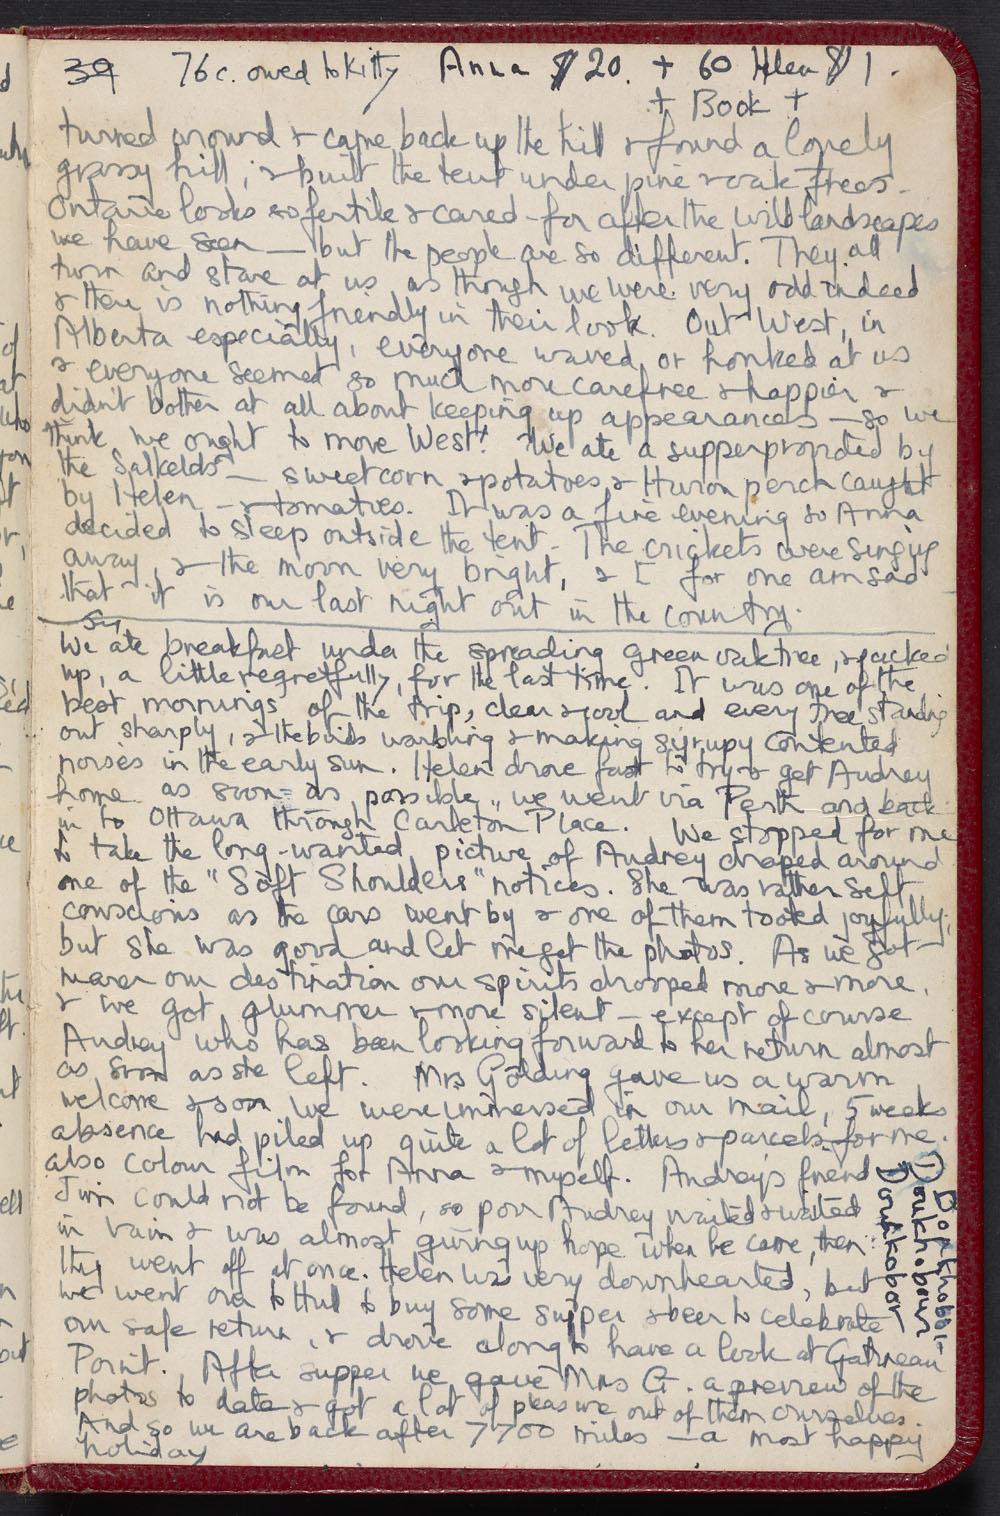 39 76c. owed to kitty Anna $20. + 60 Helen $1.
+ Book +
turned around & came back up the hill & found a lovely
grassy hill, & built the tent under pine & oak trees.
Ontario looks so fertile & cared-for after the wild landscapes
we have seen — but the people are so different. They all
turn and stare at us as though we were very odd indeed
& there is nothing friendly in their look. Out West, in
Alberta especially, everyone waved or honked at us
& everyone seemed so much more carefree & happier &
didn't bother at all about keeping up appearances — so we
think we ought to move West! We ate a supper provided by
the Salkelds — sweetcorn & potatoes, & Huron perch caught
by Helen — & tomatoes. It was a fine evening so Anna
decided to sleep outside the tent. The crickets were singing
away, & the moon very bright, & I for one am sad
that it is our last night out in the country.
Su
We ate breakfast under the spreading green oak tree, & packed
up, a little regretfully, for the last time. It was one of the
best mornings of the trip, clear & cool and every tree standing
out sharply, & the birds warbling & making syrupy contented
noises in the early sun. Helen drove fast to try & get Audrey
home as soon as possible, we went via Perth and back
in to Ottawa through Carleton Place. We stopped for me
to take the long-wanted picture of Audrey draped around
one of the "Soft Shoulders" notices. She was rather self
conscious as the cars went by & one of them tooted joyfully,
but she was good and let me get the photos. As we got
nearer our destination our spirits dropped more & more,
& we got glummer & more silent — except of course
Audrey who has been looking forward to her return almost
as soon as she left. Mrs Golding gave us a warm
welcome & soon we were immersed in our mail, 5 weeks
absence had piled up quite a lot of letters & parcels for me.
also colour film for Anna & myself. Audrey's friend
Jim could not be found, so poor Audrey waited & waited
in vain & was almost giving up hope when he came, then
they went off at once. Helen was very downhearted, but
we went over to Hull to buy some supper & beer to celebrate
our safe return, & drove along to have a look at Gatineau
Point. After supper we gave Mrs G. a preview of the
photos to date & got a lot of pleasure out of them ourselves.
And so we are back after 7700 miles — a most happy
holiday
Doukhobor
Doukhobour
Doukobor